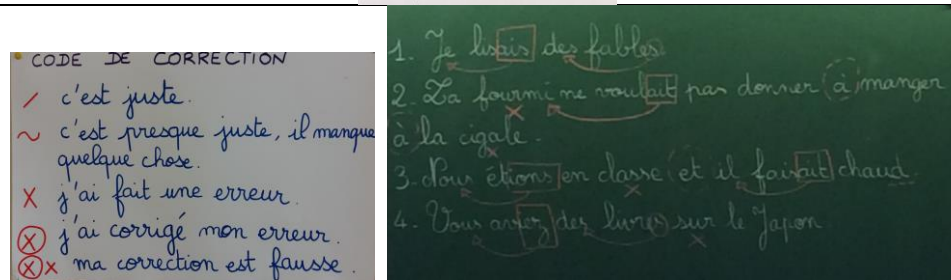 CODE DE CORRECTION
/ c'est juste.
~ c'est presque juste, il manque
quelque chose.
X j'ai fait une erreur.
Ⓧ j'ai corrigé mon erreur.
Ⓧx ma correction est fausse.
1. Je lisais des fables.
2. La fourmi ne voulait pas donner à manger
à la cigale.
3. Nous étions en classe et il faisait chaud.
4. Vous aviez des livres sur le Japon